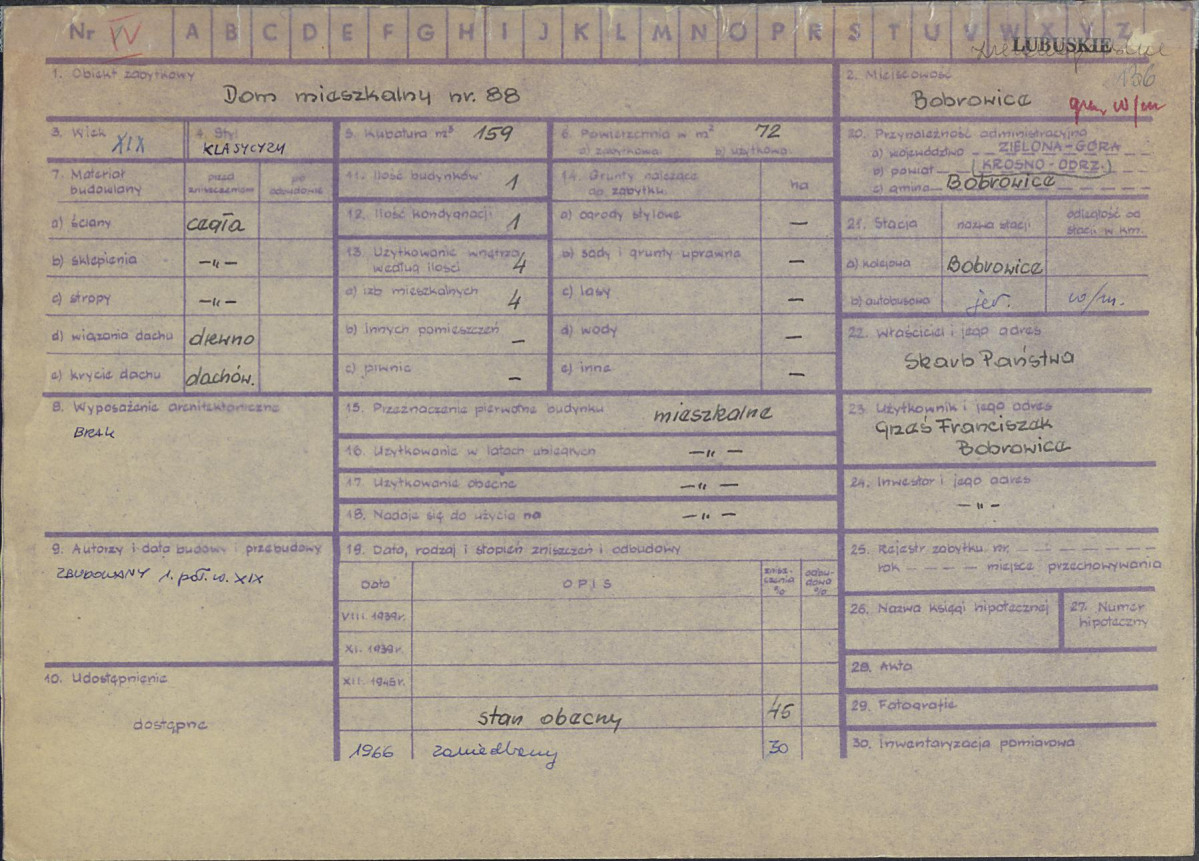 Nr IV A B C D E F G H I J K L M N O P R S T U V W X Y Z
LUBUSKIE
136
1. Obiekt zabytkowy
Dom mieszkalny nr. 88
2. Miejscowość
Bobrowice
gm. w/m
3. Wiek
XIX
4. Styl
KLASYCYZM
5. Kubatura m³ 159
6. Powierzchnia w m² 72
a) zabytkowa b) użytkowa
20. Przynależność administracyjna
a) województwo ZIELONA-GÓRA
b) powiat (KROSNO-ODRZ.)
c) gmina Bobrowice
7. Materiał budowlany
przed zniszczeniem
po odbudowie
a) ściany cegła
b) sklepienia —„—
c) stropy —„—
d) wiązania dachu drewno
e) krycie dachu dachów.
11. Ilość budynków 1
12. Ilość kondygnacji 1
13. Użytkowanie wnętrza według ilości 4
a) izb mieszkalnych 4
b) innych pomieszczeń —
c) piwnic —
14. Grunty należące do zabytku ha
a) ogrody stylowe —
b) sady i grunty uprawne —
c) lasy —
d) wody —
e) inne —
21. Stacja
nazwa stacji
odległość od stacji w km.
a) kolejowa Bobrowice
b) autobusowa jer. w/m.
22. Właściciel i jego adres
Skarb Państwa
8. Wyposażenie architektoniczne
BRAK
15. Przeznaczenie pierwotne budynku mieszkalne
16. Użytkowanie w latach ubiegłych —„—
17. Użytkowanie obecne —„—
18. Nadaje się do użycia na —„—
23. Użytkownik i jego adres
Grześ Franciszek
Bobrowice
24. Inwestor i jego adres
—„—
9. Autorzy i data budowy i przebudowy
ZBUDOWANY 1. poł. w. XIX
19. Data, rodzaj i stopień zniszczeń i odbudowy
Data OPIS znisz-czenia % odbu-dowa %
VIII. 1939r.
XI. 1939r.
XII. 1945r.
stan obecny 45
1966 zaniedbany 30
25. Rejestr zabytku nr. — — — — — —
rok — — — — miejsce przechowywania
26. Nazwa księgi hipotecznej
27. Numer hipoteczny
28. Akta
29. Fotografie
30. Inwentaryzacja pomiarowa
10. Udostępnienie
dostępne